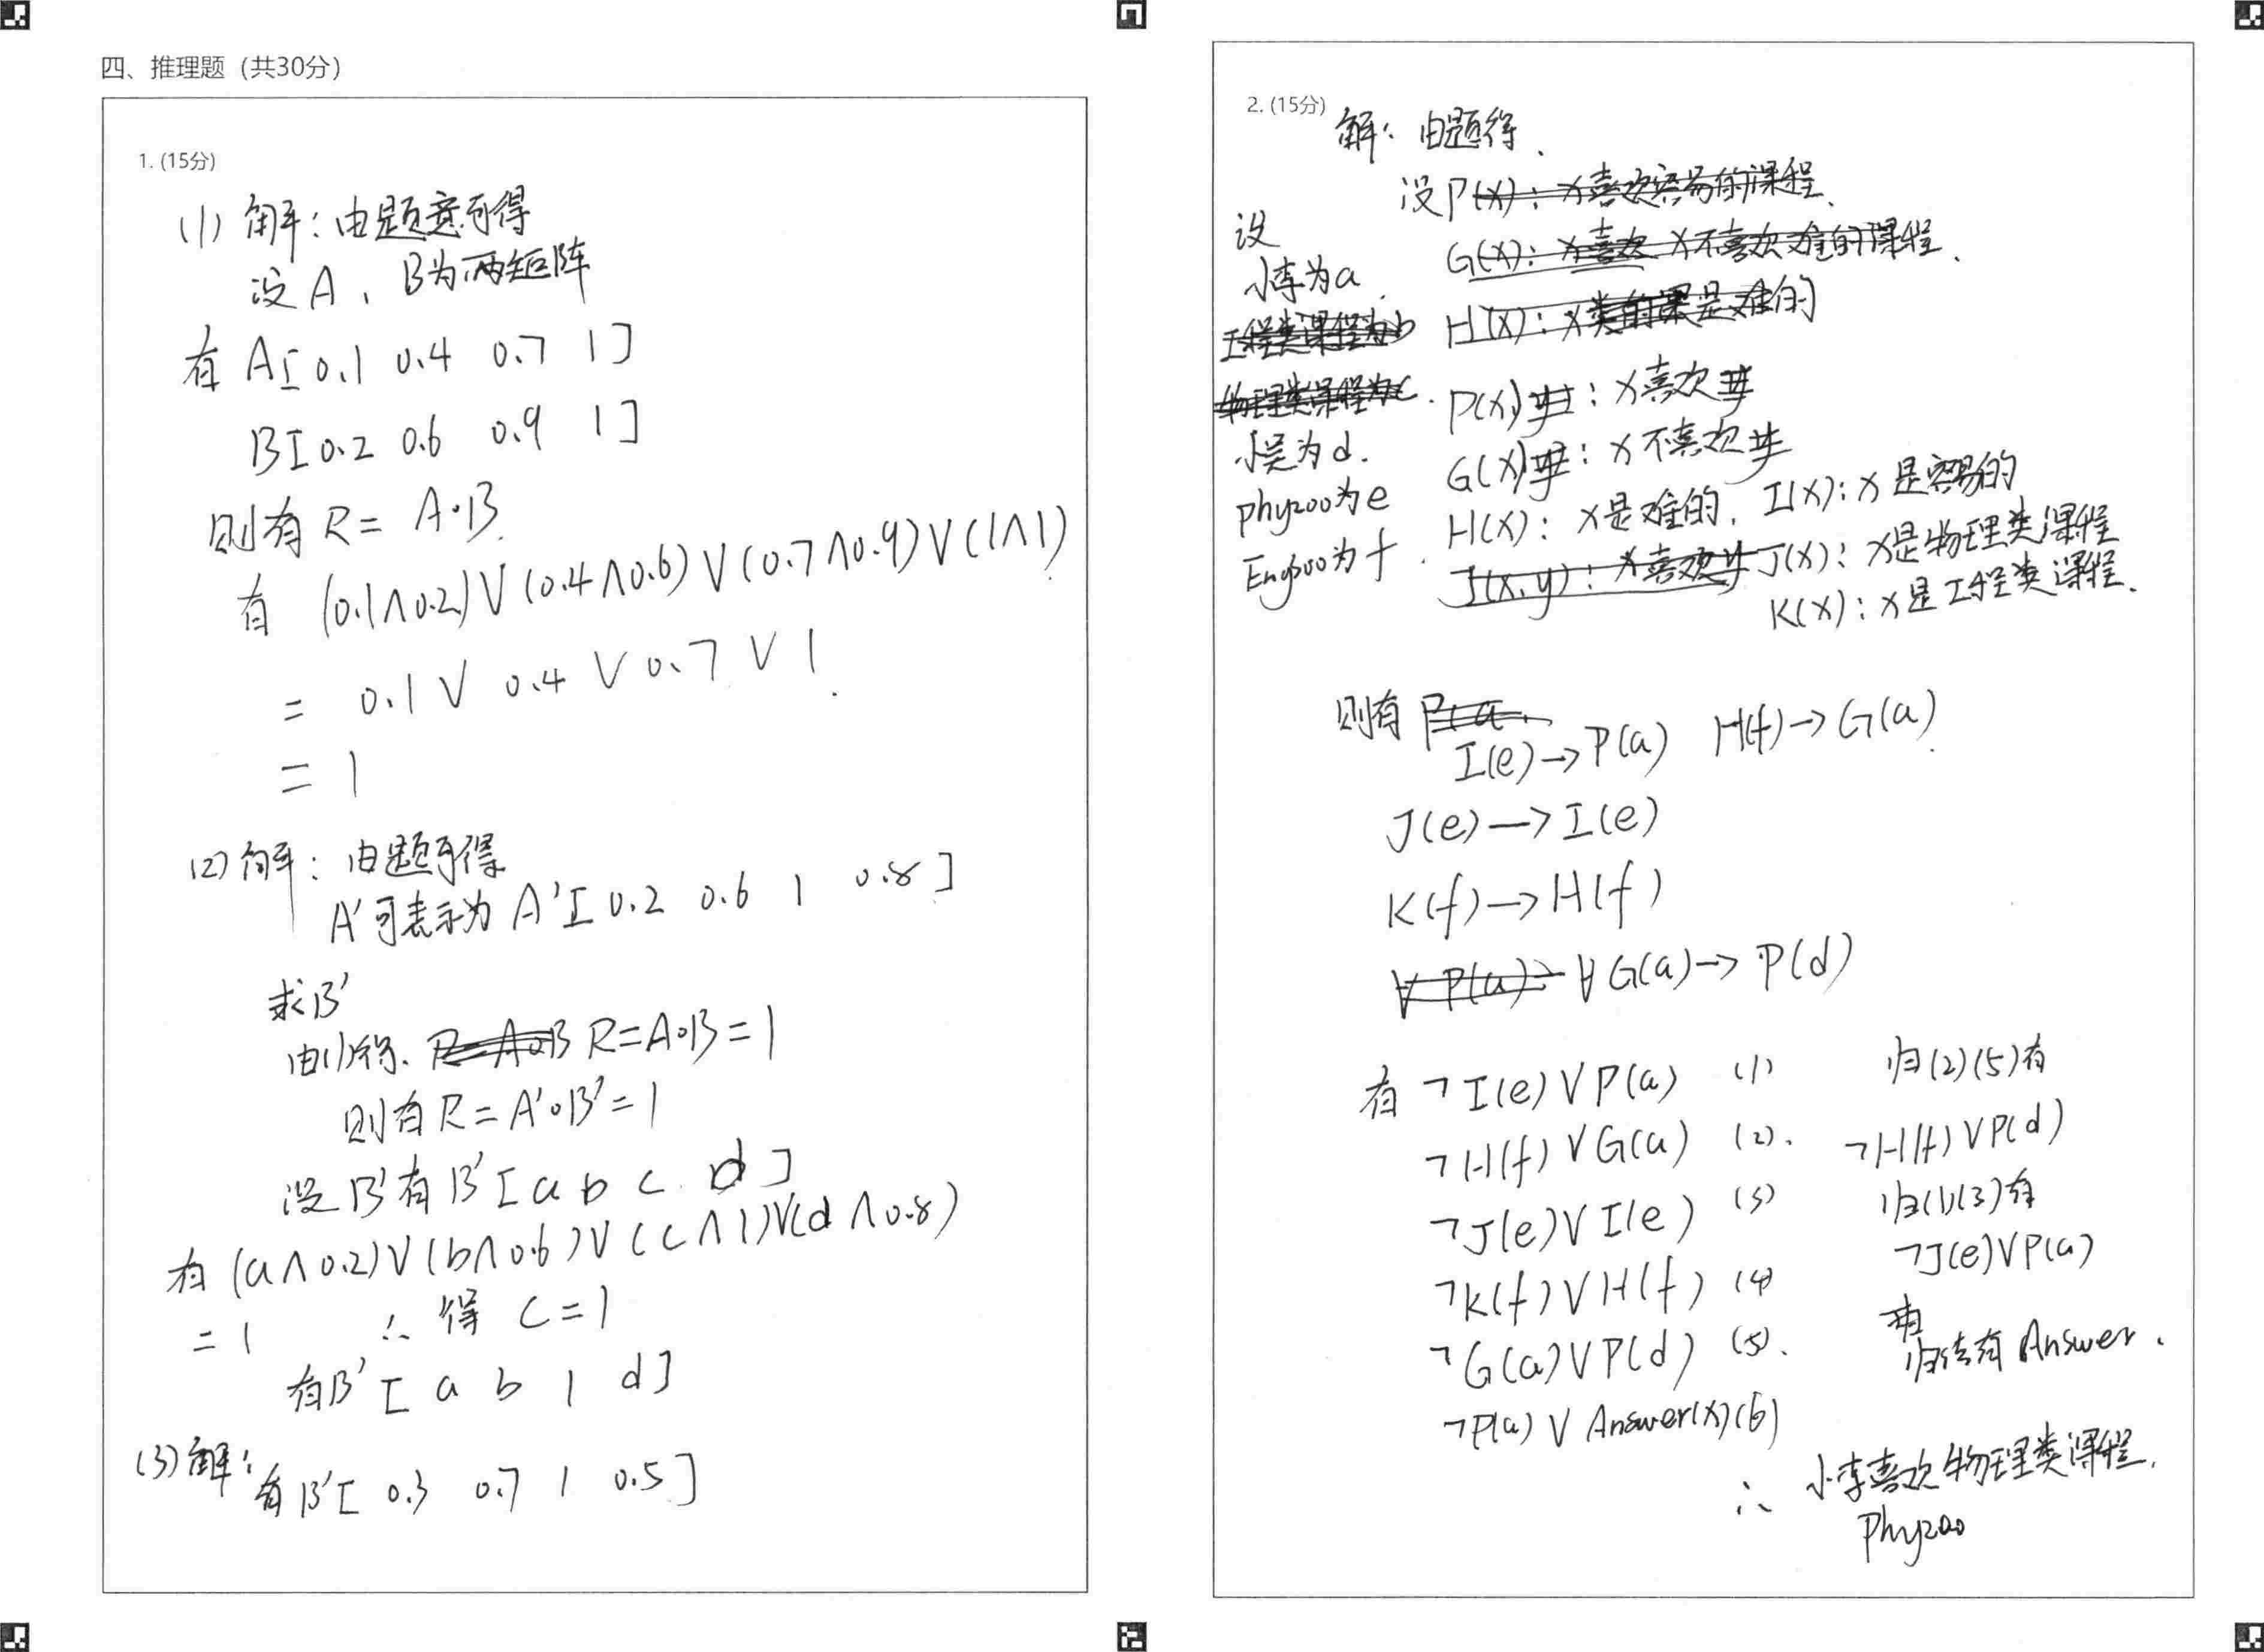 四、推理题 (共30分)
1. (15分)
(1) 解：由题意可得
设A、B为两矩阵
有 A[0.1 0.4 0.7 1]
B[0.2 0.6 0.9 1]
则有 R = A∘B
有 (0.1∧0.2)∨(0.4∧0.6)∨(0.7∧0.9)∨(1∧1)
= 0.1 ∨ 0.4 ∨ 0.7 ∨ 1
= 1
(2) 解：由题可得
A'可表示为 A'[0.2 0.6 1 0.8]
求B'
由(1)得、R=A∘B=1
则有 R=A'∘B'=1
设B'有B'[a b c d]
有 (a∧0.2)∨(b∧0.6)∨(c∧1)∨(d∧0.8)
=1 ∴得 c=1
有B'[a b 1 d]
(3) 解：
有B'[0.3 0.7 1 0.5]
2. (15分)
解：由题得、
设
小李为a、
小吴为d.
phy200为e
Eng300为f.
设P(x): x喜欢容易的课程、
G(x): x喜欢 x不喜欢难的课程.
H(x): x类的课是难的
P(x): x喜欢
G(x): x不喜欢
H(x): x是难的, I(x): x是容易的
J(x,y): x喜欢y J(x): x是物理类课程
K(x): x是工程类课程.
则有
I(e)→P(a) H(f)→G(a)
J(e)→I(e)
K(f)→H(f)
∀P(a)→ ∀G(a)→P(d)
有 ¬I(e)∨P(a) (1)
¬H(f)∨G(a) (2).
¬J(e)∨I(e) (3)
¬K(f)∨H(f) (4)
¬G(a)∨P(d) (5).
¬P(a)∨Answer(x)(6)
归(2)(5)有
¬H(f)∨P(d)
归(1)(3)有
¬J(e)∨P(a)
归结有 Answer.
∴ 小李喜欢物理类课程.
Phy200